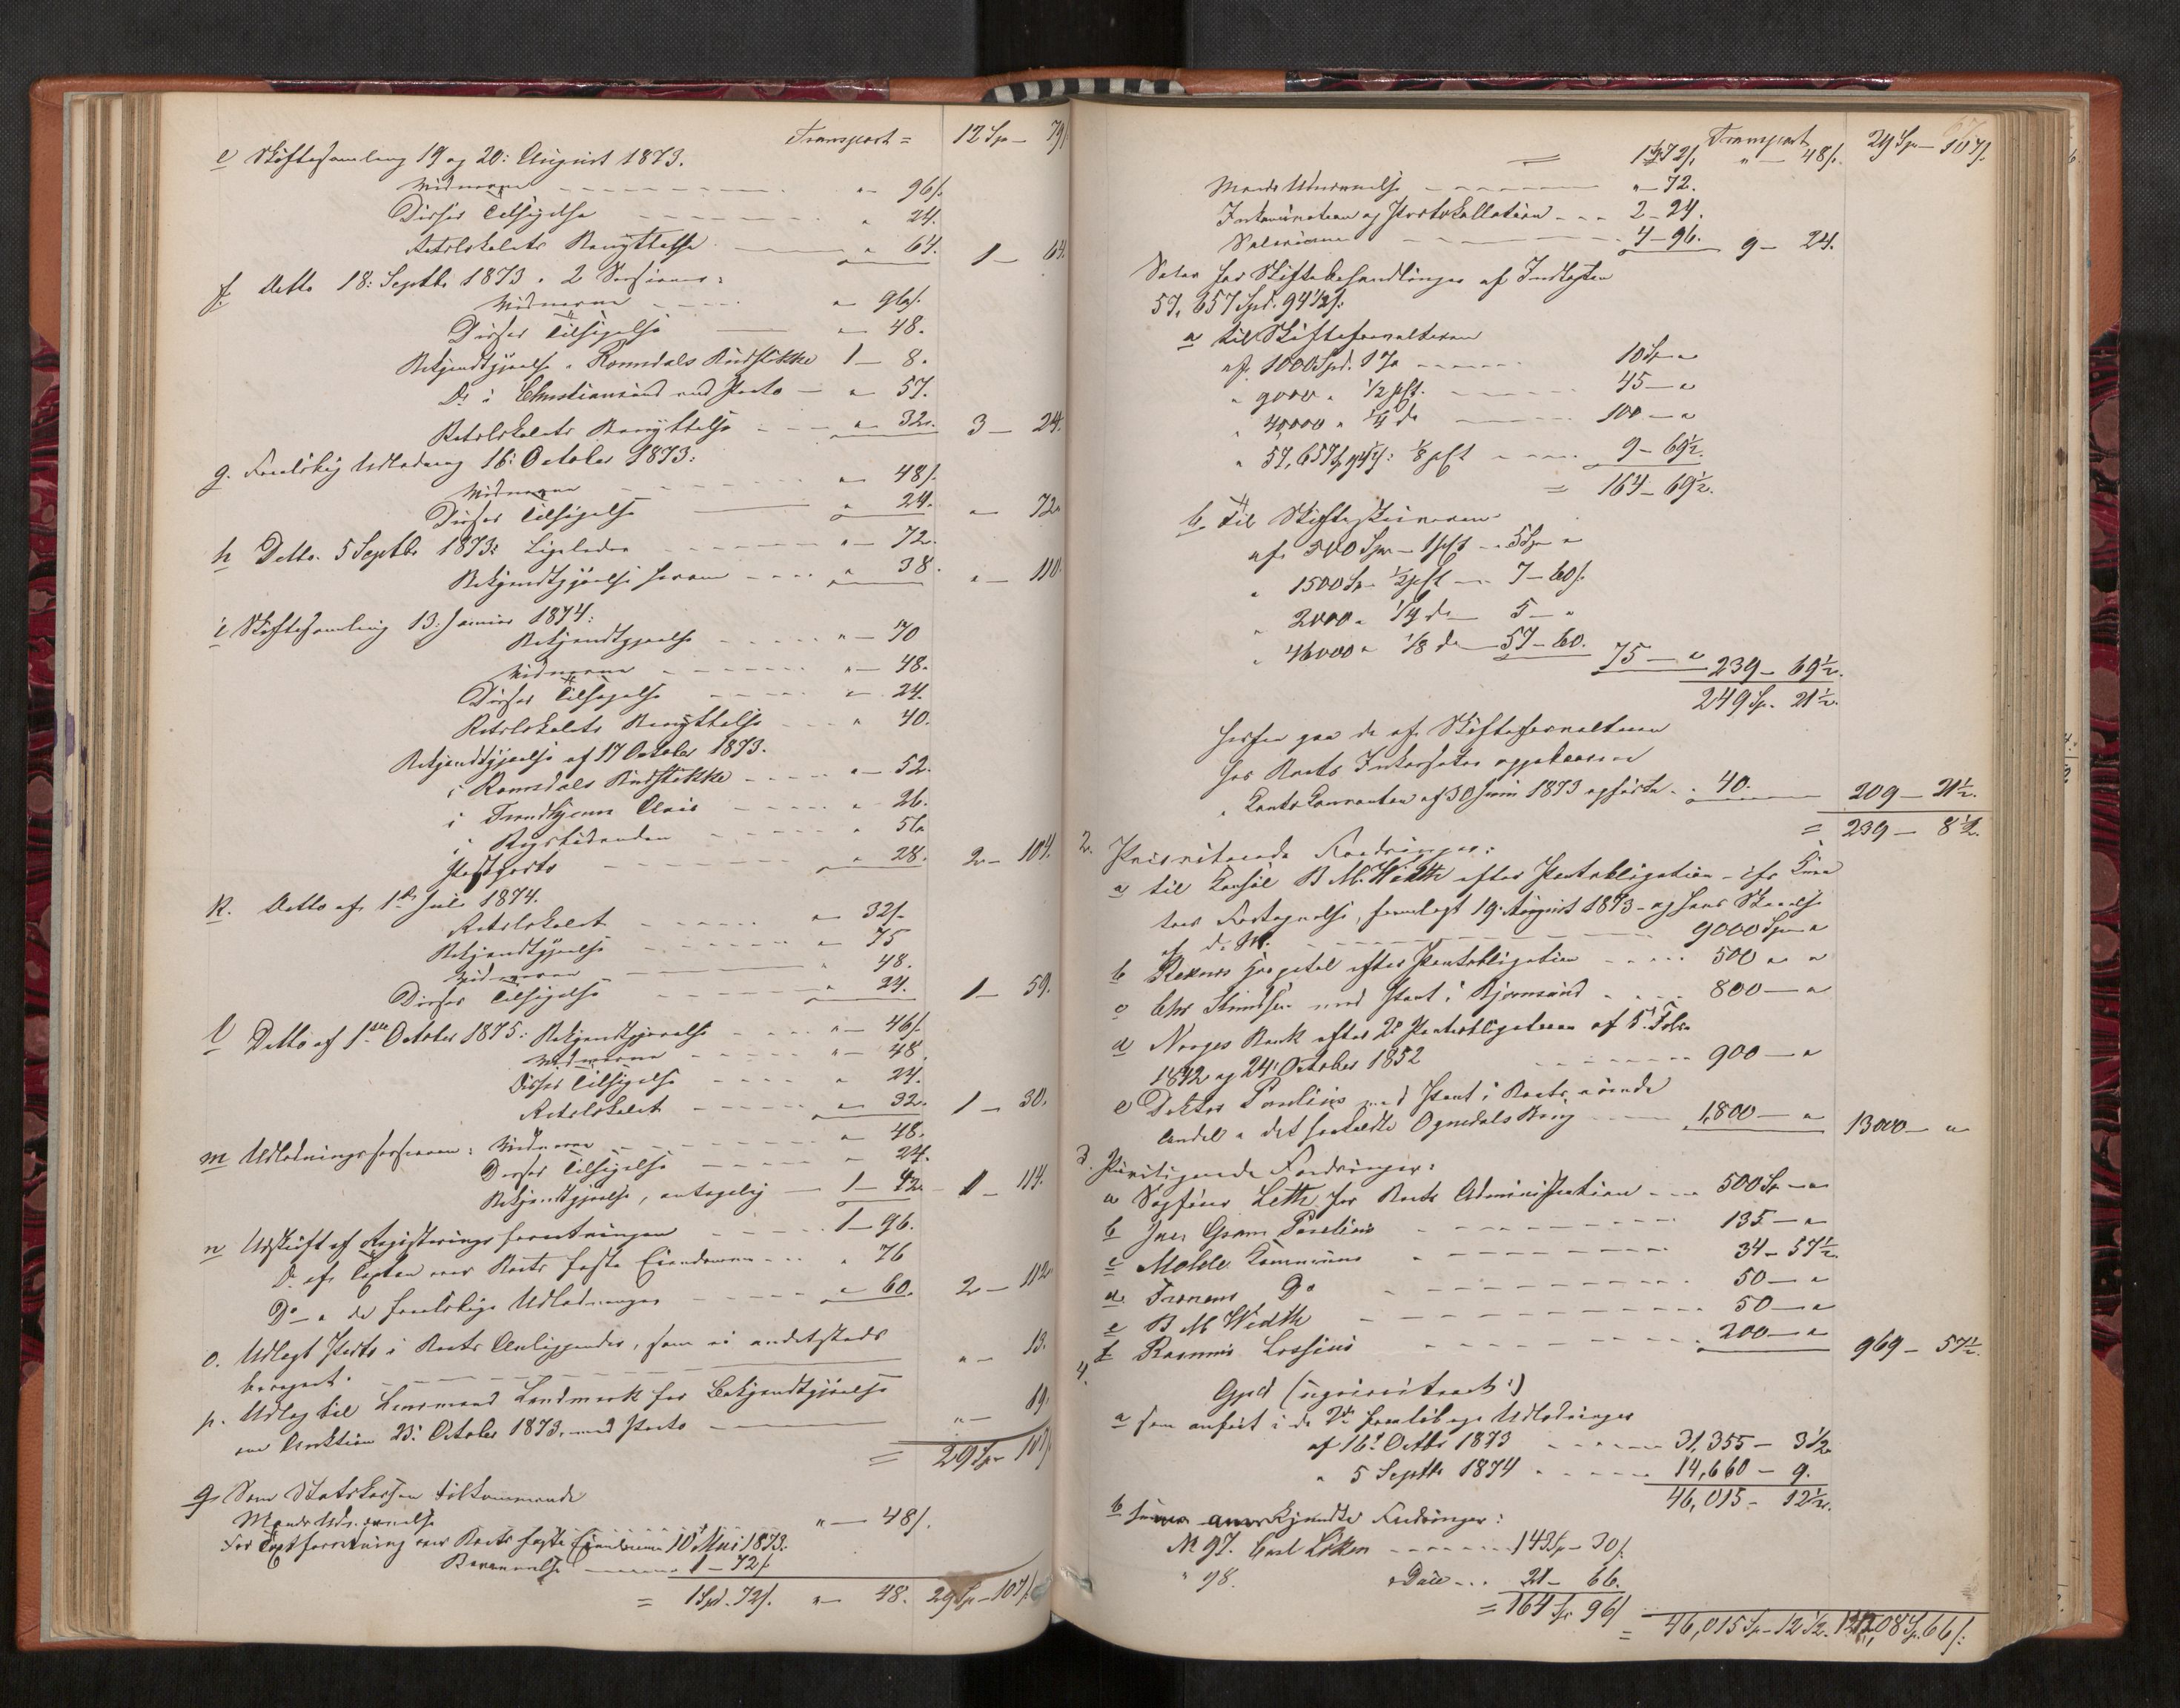 Transport = 12 Sp — 79
e Skiftesamling 19 og 20: August 1873.
Vidnerne " 96 s.
Disses Tilsigelse " 24.
Retslokalets Benyttelse " 64. 1 — 64.
f. Detto 18: Septbr 1873. 2 Sessioner:
Vidnerne " — 96 s.
Disses Tilsigelse " — 48.
Bekjendtgjørelse i Romsdals Budstikke 1 — 8.
Do i Christiansund med Porto — " 57.
Retslokalets Benyttelse " 32. 3 — 24.
g. Foreløbig Udlodning 16: October 1873:
Vidnerne " 48 s.
Disses Tilsigelse " 24. " — 72.
h Detto. 5 Septbr 1873: Ligeledes " — 72.
Bekjendtgjørelse herom " 38. " — 110.
i Skiftesamling 13: Januar 1874:
Bekjendtgjørelse " — 70
Vidnerne " — 48.
Disses Tilsigelse " 24.
Retslokalets Benyttelse " 40.
Bekjendtgjørelse af 17 October 1873.
i Romsdals Budstikke " — 52.
i Trondhjems Avis " 26.
i Rigstidenden " 56
Postporto " 28. 2 — 104.
k. Detto af 1ste Juli 1874.
Retslokalet " 32 s.
Bekjendtgjørelse " 75
Vidnerne " 48.
Disses Tilsigelse " 24. 1 — 59.
l Detto af 1ste October 1875: Bekjendtgjørelse " — 46 s.
Vidnerne " — 48.
Disses Tilsigelse " 24.
Retslokalet " 32. 1 — 30.
m Udlodningssessionen: Vidnerne " 48.
Disses Tilsigelse " 24.
Bekjendtgjørelse, antagelig 1 — 42 1 — 114.
n Udskrift af Registreringsforretningen 1 — 96.
Do. af Taxten over Boets faste Eiendomme " 76
Do — " de foreløbige Udlodninger " 60. 2 — 112
o. Udlagt Porto i Boets Anliggender, som ei andetsteds
beregnet. " — 13.
p. Udlæg til Lensmand Landmark for Bekjendtgjørelse
om Auktion 23: October 1873, med Porto " — 89.
= 29 Sp 107
q Som Statskassen tilkommende
Mands Udnævnelse " — 48 s.
For Taxtforretning over Boets faste Eiendomme 10d Mai 1873:
Berammelse 1 — 72 s.
= 1 Spd. 72 s. " — 48. 29 Sp — 107 s.
Transport
= 1 " 72 s. " — 48 s. 29 Sp — 107 s.
Mands Udnævnelse " — 72.
Intimation og Protokollation 2 — 24.
Salarium 4 — 96. 9 — 24.
Salær for Skiftebehandlingen af Indtægten
57,657 Spd. 94 1/2 s:
a til Skifteforvalteren
af 1000 Spd. 1 % 10 Sp "
" 9000 " 1/2 pCt. 45 — "
" 40,000 " 1/4 do 100 — "
" 57,657 94 1/2: 1/8 pCt 9 — 69 1/2.
= 164 — 69 1/2.
b. Til Skifteskriveren
af 500 Spd — 1 pCt 5 Sp "
" 1500 Sp 1/2 pCt 7 — 60 s.
" 2000 " 1/4 do 5 — "
" 46000 " 1/8 do 57 — 60. 75 — " 239 — 69 1/2.
249 Sp. 21 1/2.
Herfra gaa de af Skifteforvalteren
for Boets Interesser oppebaarne
" Conto Couranten af 30 Juni 1873 opførte 40. 209 — 21 1/2.
= 239 — 8 1/2.
2. Prioriterede Fordringer:
a til Konsul B M. Width efter Pantobligation
fremlagt 19: August 1873 — og hans Skrivelse
af d. M. 9000 Sp "
b Reknes Hospital efter Pantobligation 500 " "
c Chr Knudsen med Pant i Bjørnsund 800 — "
d Norges Bank efter 2de Pantobligationer af 5: Febr
1842 og 24: October 1852 900 — "
e Doktor Parelius med Pant i Boets eiende
Andel i det saakaldte Ognedals Brug 1,800 — " 13000 — "
3. Privilegerede Fordringer:
a Sagfører Leth for Boets Administration 500 Sp — "
b Jver Gram Parelius 135 — "
c Molde Kommune 34 — 57 1/2.
d Fremens Do 50 — "
e B M Width 50 — "
f Rasmus Lossius 200 — " 969 — 57 1/2.
4. Gjæld (uprioriteret:)
a som anført i de 2de foreløbige Udlodninger
af 16: Octbr 1873 31,355 — 3 1/2
" 5 Septbr 1874 14,660 — 9.
46,015 — 12 1/2.
b senere anerkjendte Fordringer:
No 97. Carl Løken 143 Sp — 30 s.
" 98. " Do 21 — 66.
= 164 Sp 96 s
= 46,015 Sp — 12 1/2. 14,208 Sp. 66 s: